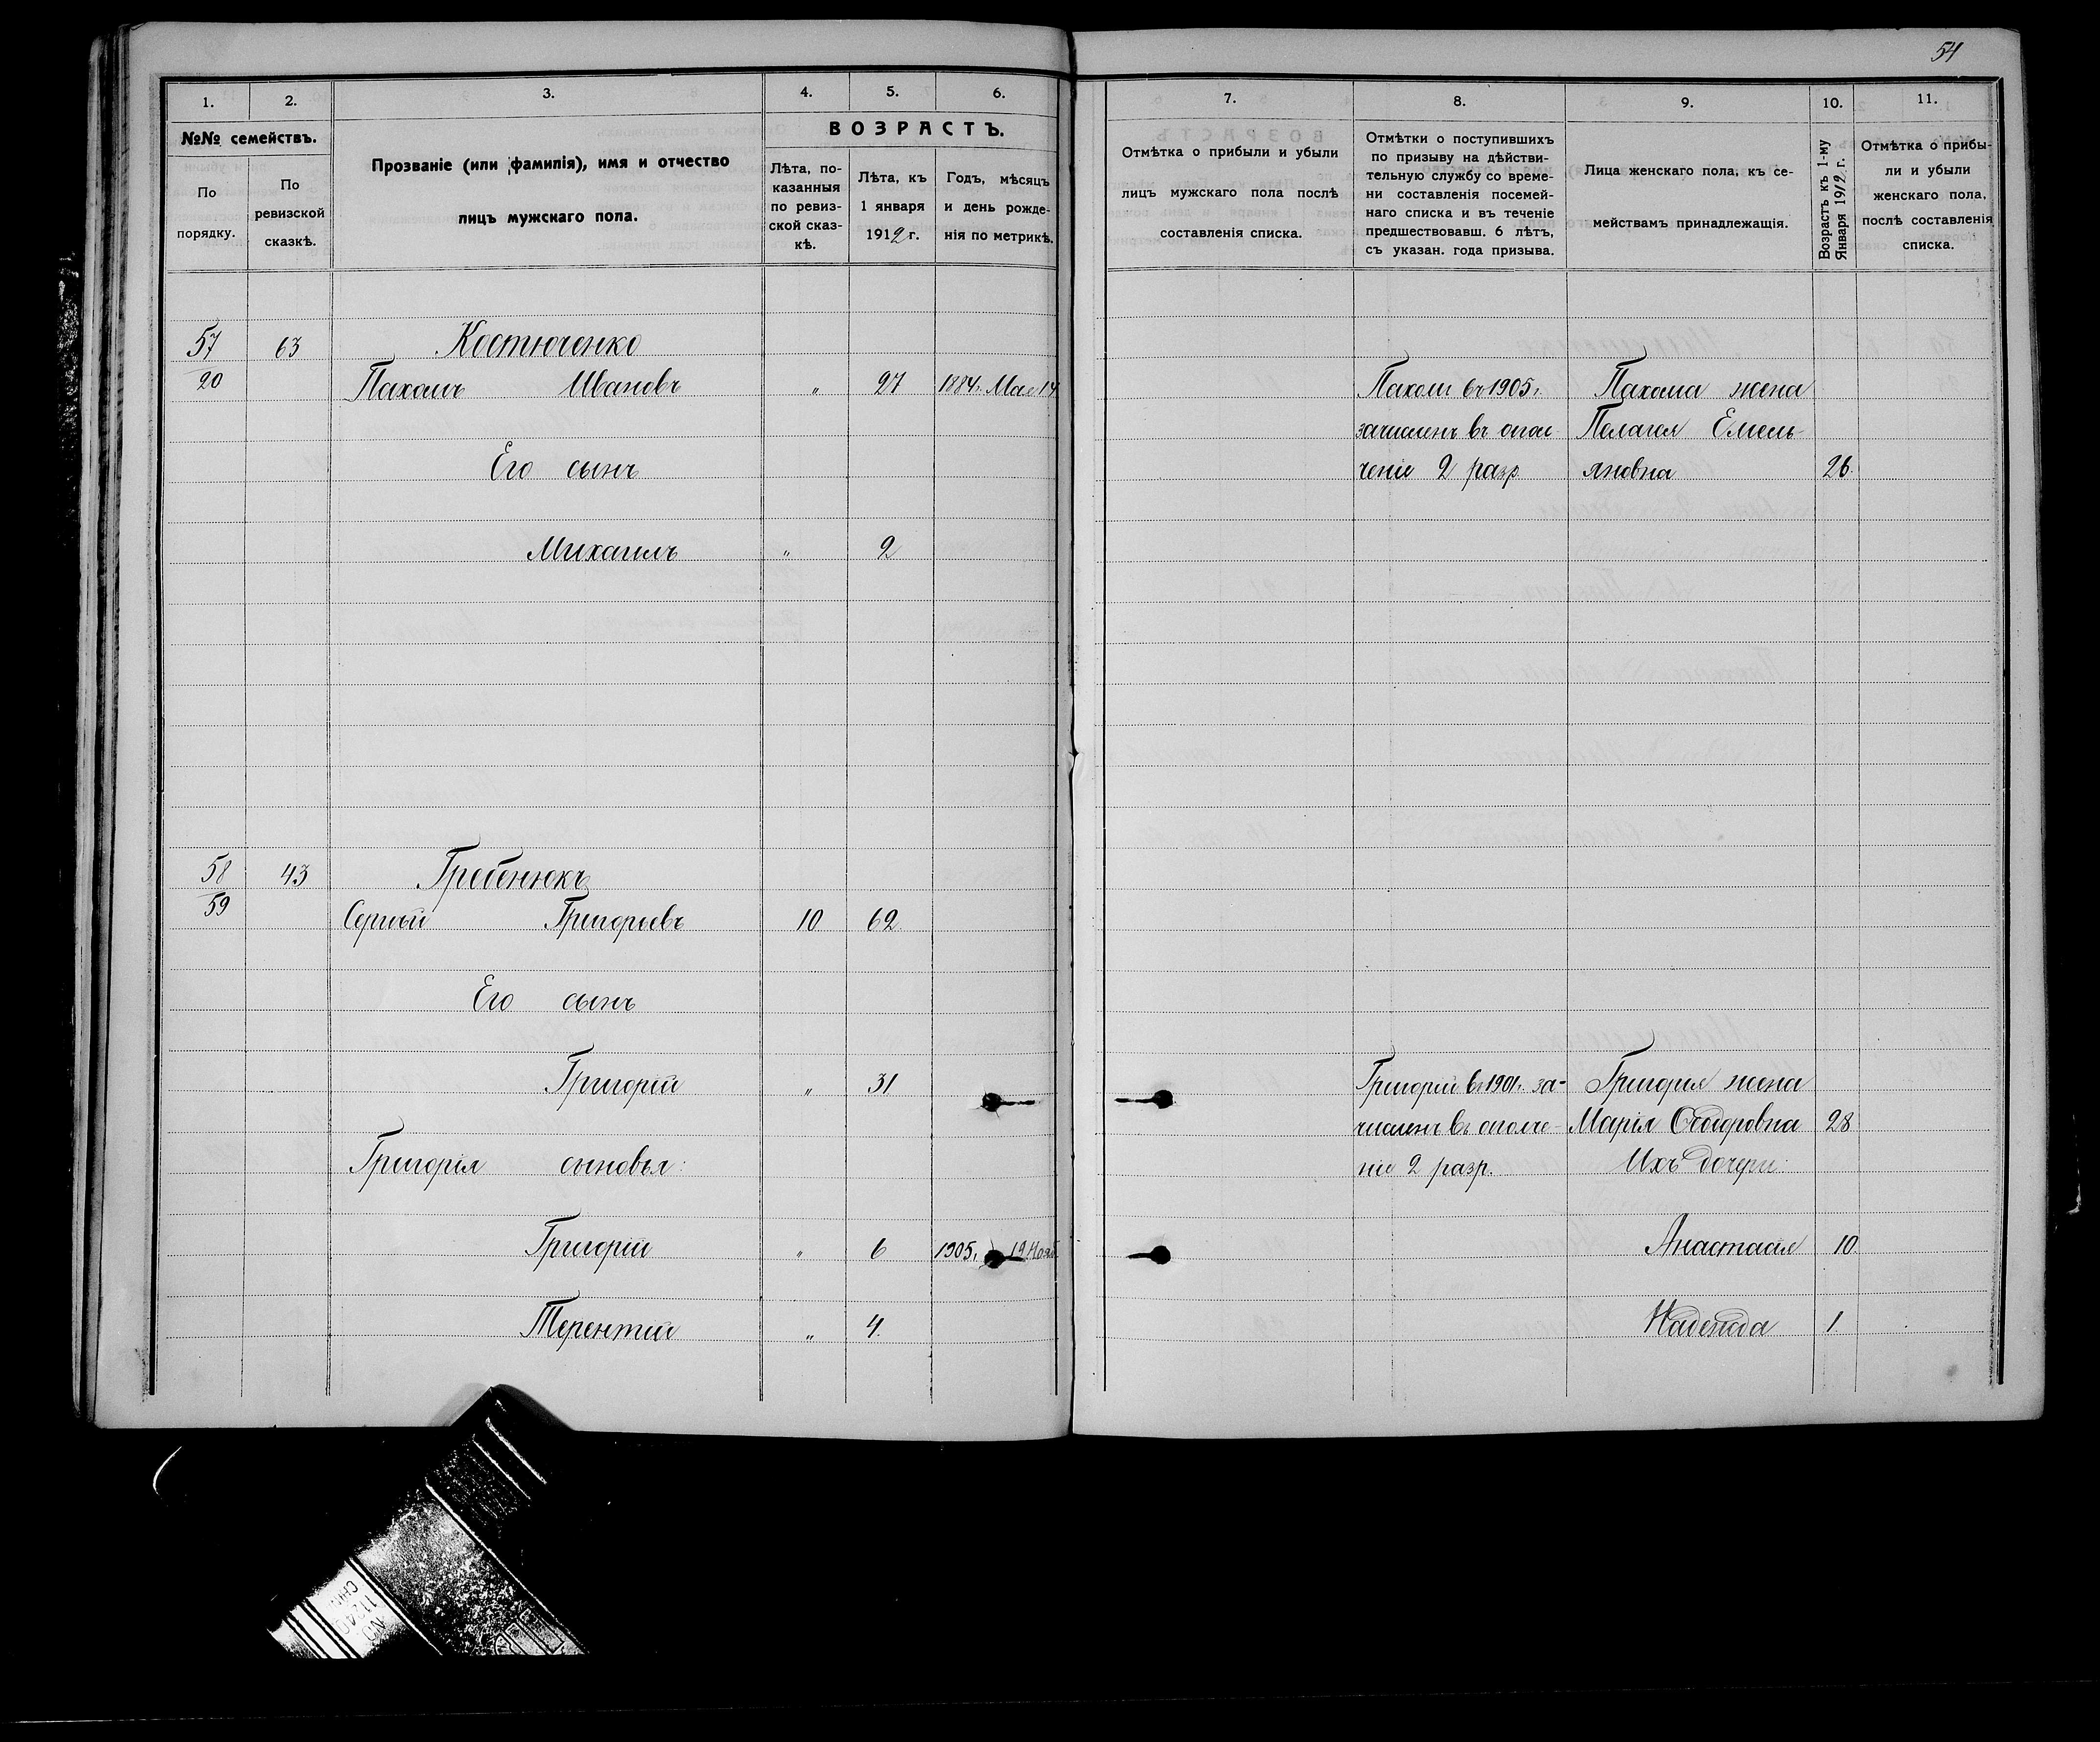 54
1. 2. 3. 4. 5. 6. 7. 8. 9. 10. 11.
№№ семействъ.
По порядку.
По ревизской сказкѣ.
Прозваніе (или фамилія), имя и отчество
лицъ мужскаго пола.
ВОЗРАСТЪ.
Лѣта, по-
казанныя
по ревиз-
ской сказ-
кѣ.
Лѣта, къ
1 января
1912 г.
Годъ, мѣсяцъ
и день рожде-
нія по метрикѣ.
Отмѣтка о прибыли и убыли
лицъ мужскаго пола послѣ
составленія списка.
Отмѣтки о поступившихъ
по призыву на дѣйстви-
тельную службу со време-
ни составленія посемей-
наго списка и въ теченіе
предшествовавш. 6 лѣтъ,
съ указан. года призыва.
Лица женскаго пола, къ се-
мействамъ принадлежащія.
Возрастъ къ 1-му
Января 1912 г.
Отмѣтка о прибы-
ли и убыли
женскаго пола,
послѣ составленія
списка.
57 63 Костюченко
20 Пахомъ Ивановъ " 27 1884г. Мая 14 Пахомъ въ 1905г. Пахома жена
зачисленъ въ опол- Пелагея Емель-
Его сынъ ченіе 2 разр. яновна 26.
Михаилъ " 2
58 43 Гребенюкъ
59 Сергѣй Григорьевъ 10 62
Его сынъ
Григорій " 31 Григорій въ 1901г. за- Григорія жена
численъ въ ополче- Марія Ѳедоровна 28
Григорія сыновья: ніе 2 разр. Ихъ дочери:
Григорій " 6 1905г. 12 Нояб. Анастасія 10
Терентій " 4. Надежда 1.
NO.
11240